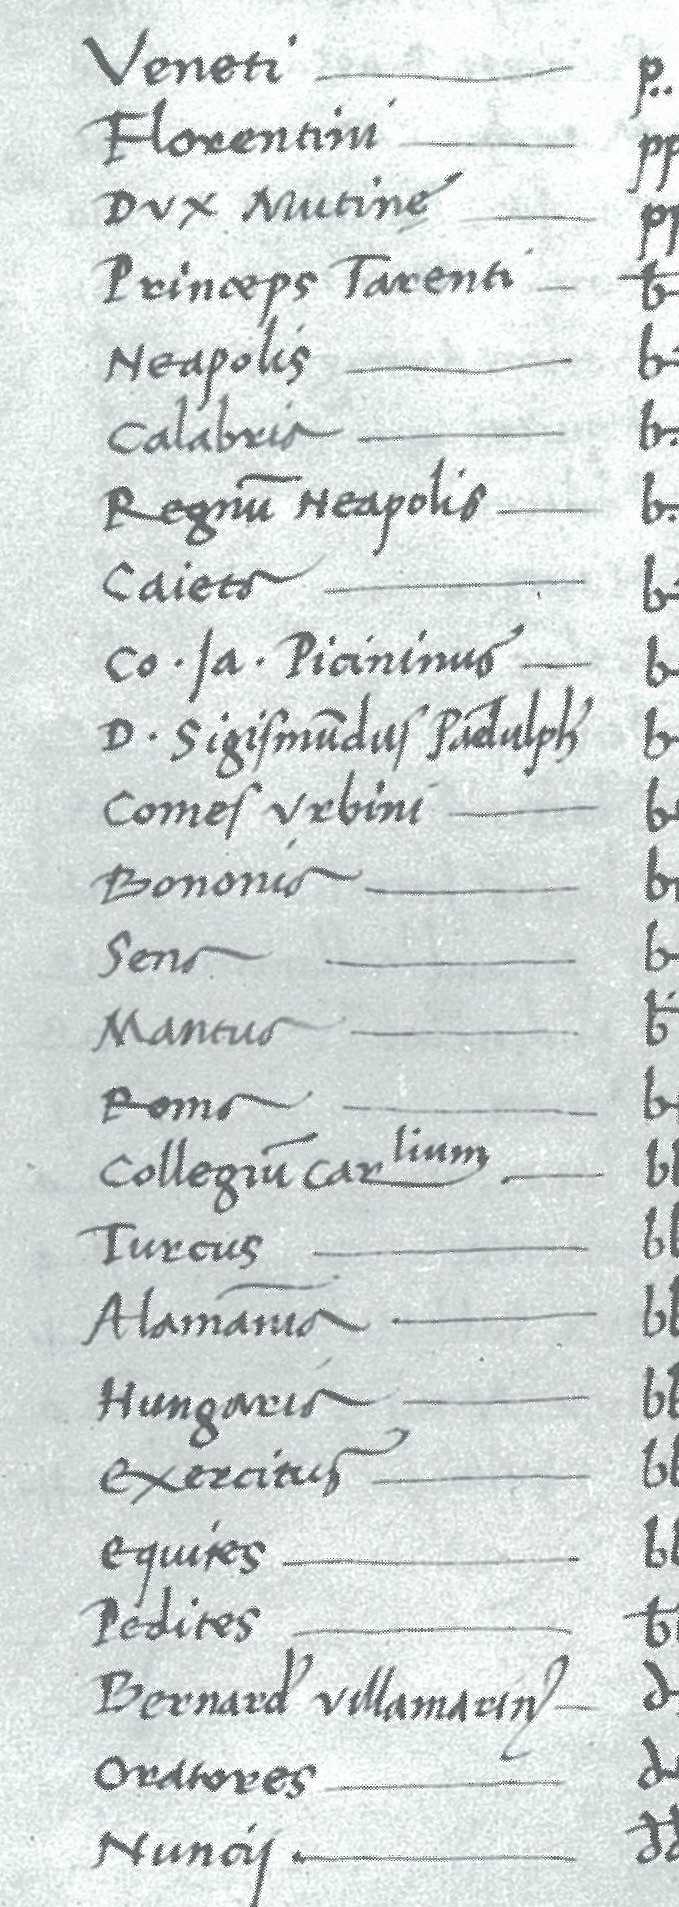 Veneti p..
Florentini pp
Dvx Mutinę pp
Princeps Tarenti
Neapolis
Calabria b.
Regnū Neapolis b.
Caieta
Co. Ja. Picininus
D. Sigiſmūduſ Pādulph
Comeſ vrbini
Bononia
Sena
Mantua
Roma
Collegiū Carlium
Turcus
Alamānia
Hungaria
exercitus
equites
Pedites
Bernard villamarin
Oratores
Nuncij